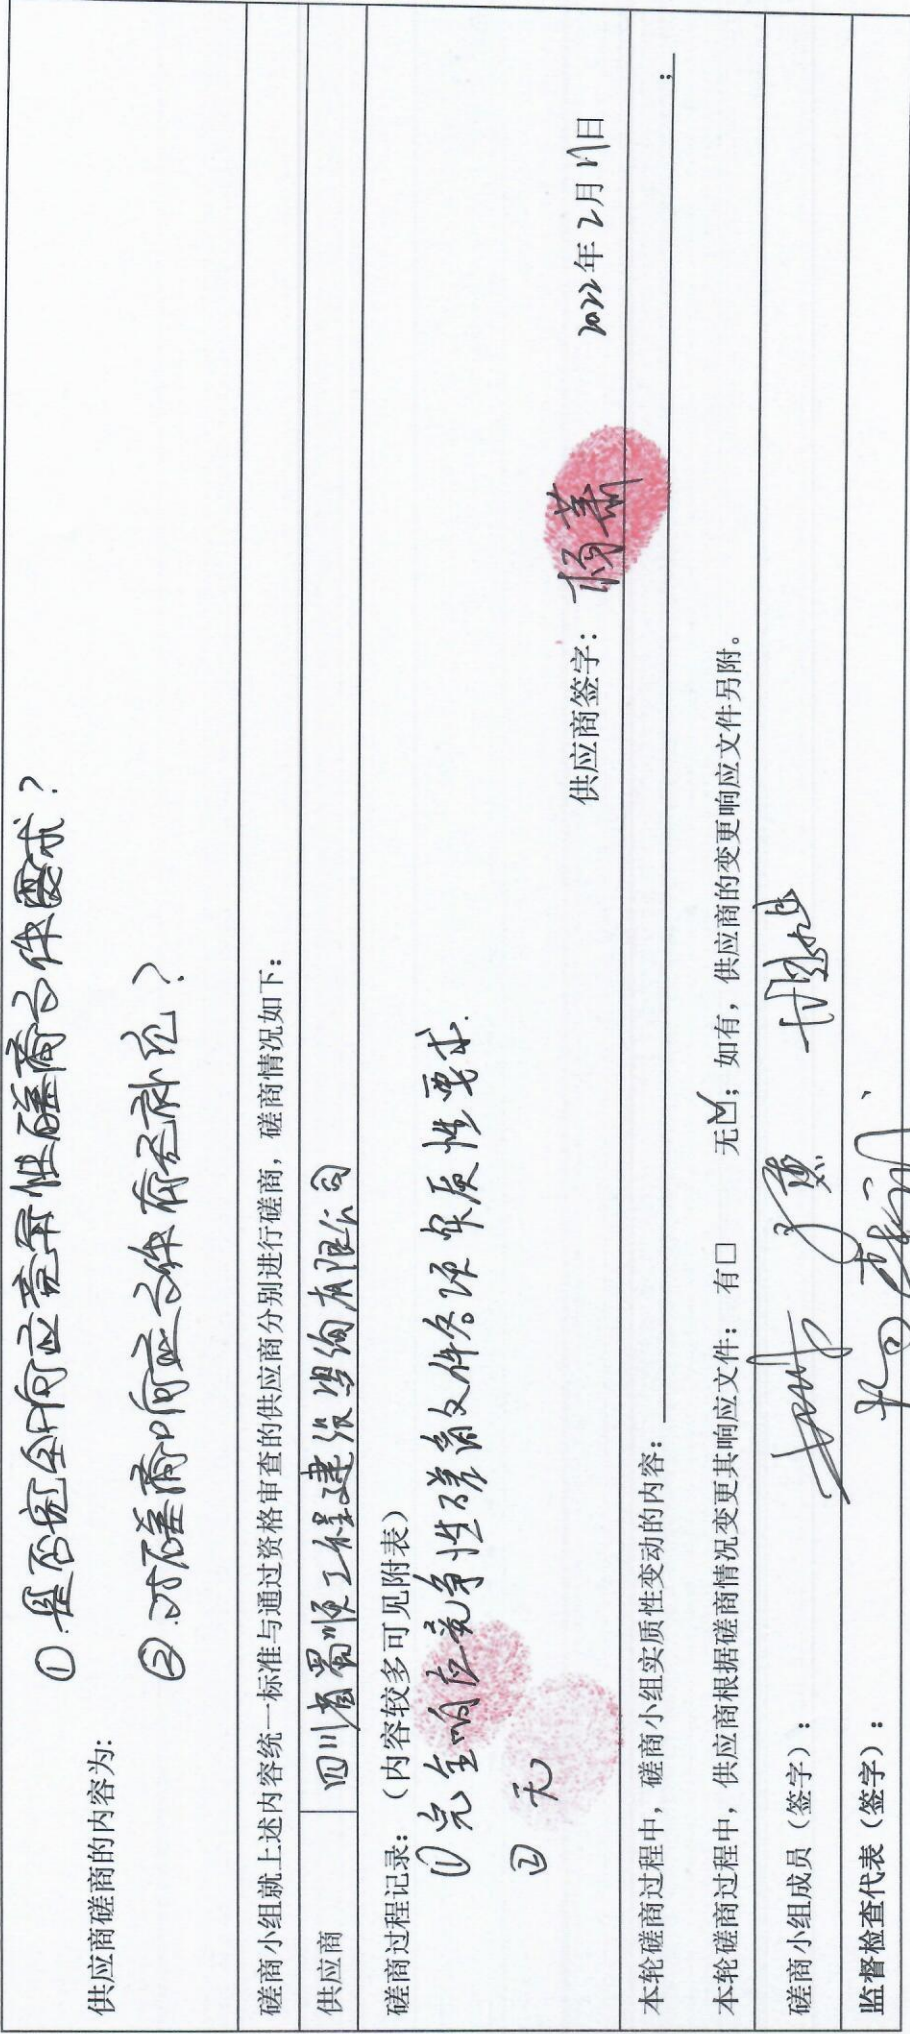 供应商磋商的内容为:
①是否完全响应竞争性磋商文件要求?
②.对磋商响应文件有无补充?
磋商小组就上述内容统一标准与通过资格审查的供应商分别进行磋商,磋商情况如下:
供应商 四川省蜀顺工程建设咨询有限公司
磋商过程记录:(内容较多可见附表)
①完全响应竞争性磋商文件各项实质性要求.
② 无
供应商签字: 2022年2月17日
本轮磋商过程中,磋商小组实质性变动的内容: ;
本轮磋商过程中,供应商根据磋商情况变更其响应文件: 有□ 无☑;如有,供应商的变更响应文件另附。
磋商小组成员(签字):
监督检查代表(签字):